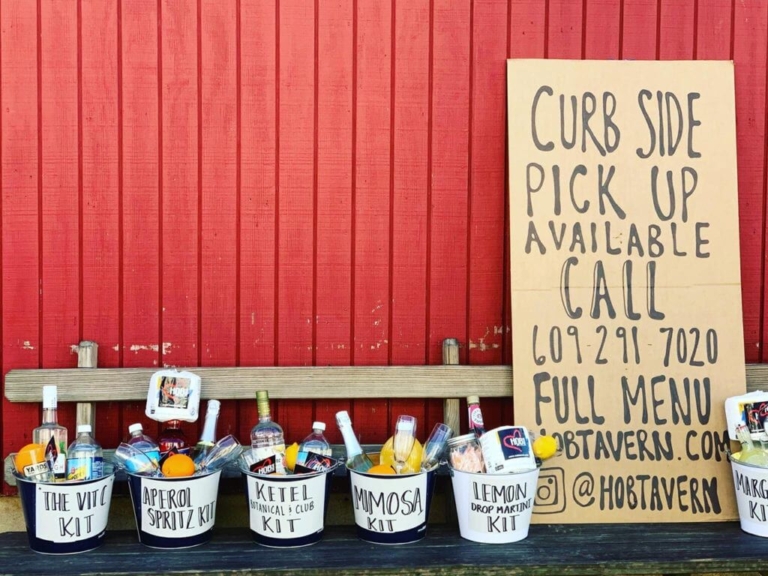 CURB SIDE
PICK UP
AVAILABLE
CALL
609·291 7020
FULL MENU
HOBTAVERN.COM
@HOBTAVERN
THE VIT C
KIT
APEROL
SPRITZ KIT
KETEL
BOTANICAL & CLUB
KIT
MIMOSA
KIT
LEMON
DROP MARTINI
KIT
MARG
KIT